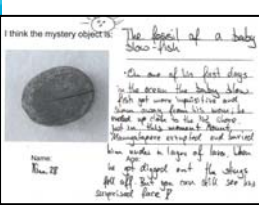 I think the mystery object is:
The fossil of a baby
blow-fish
On one of his first days
in the ocean the baby blow
fish got more inquisitive and
swam away from his mom; he
up close to the hot shore
but in this moment Mount
erupted and buried
him under a layer of lava. When
he got digged out the stings
fell off. But you can still see his
surprised face :P
Name:
Age:
28